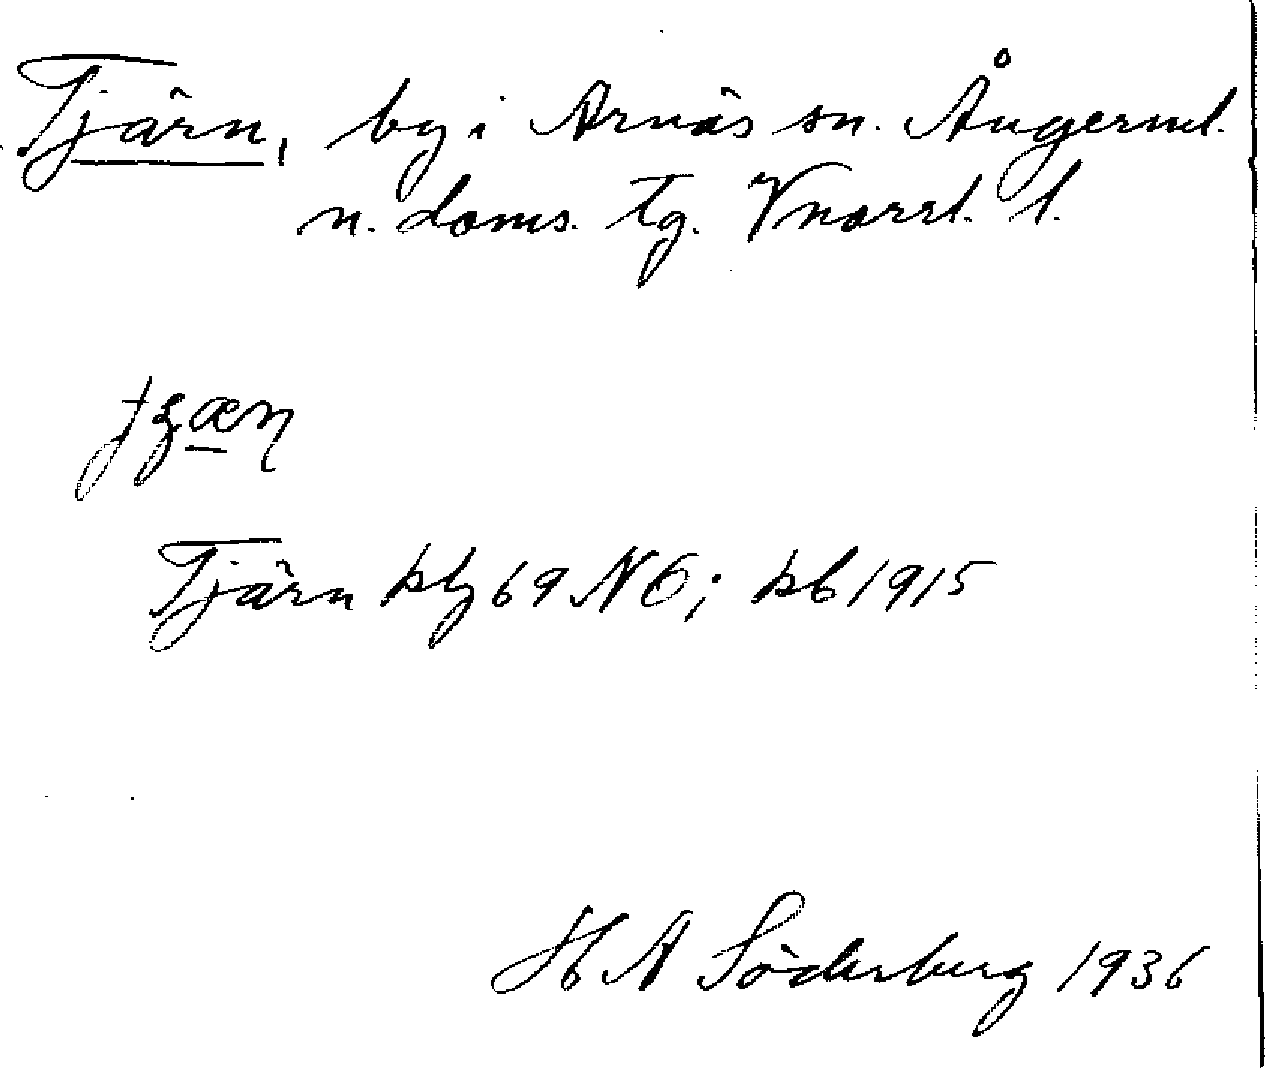 Tjärn, by i Arnäs sn. Ångerml.
n. doms. tg. Vnorrl. l.
Tjärn kbl 69 NÖ; kb 1915
H A Söderberg 1936